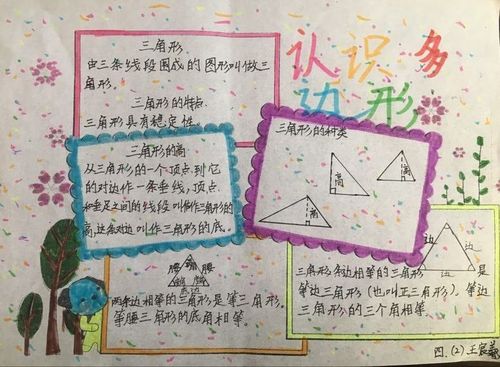 认识多
边形
三角形
由三条线段围成的图形叫做三
角形.
三角形的特点
三角形具有稳定性。
三角形的高
从三角形的一个顶点到它
的对边作一条垂线,顶点
和垂足之间的线段叫作三角形的
高,这条对边叫作三角形的底。
三角形的种类
高
高
高
腰 顶角 腰
底角 底角
底边
两条边相等的三角形是等三角形,
等腰三角形的底角相等。
边 边
边
三角形条边相等的三角形是
等边三角形(也叫正三角形),等边
三角形的三个角相等.
四.(2)王宸羲